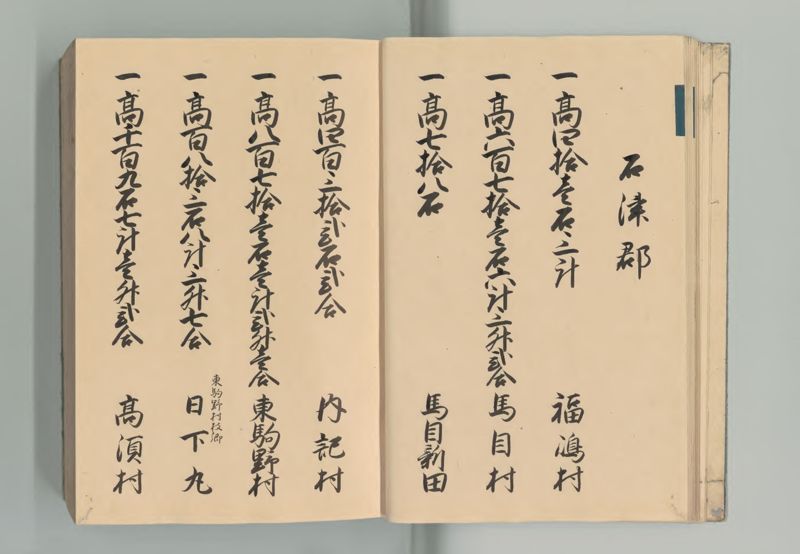 石津郡
一高四拾壱石三斗
福嶋村
一高六百七拾壱石六斗三升弐合
馬目村
一高七拾八石
馬目新田
一高四百三拾弐石弐合
内記村
一高八百七拾壱石壱斗弐升壱合
東駒野村
一高百八拾三石八斗三升七合
東駒野村枝郷
日下丸
一高千百九石七斗壱升弐合
高須村